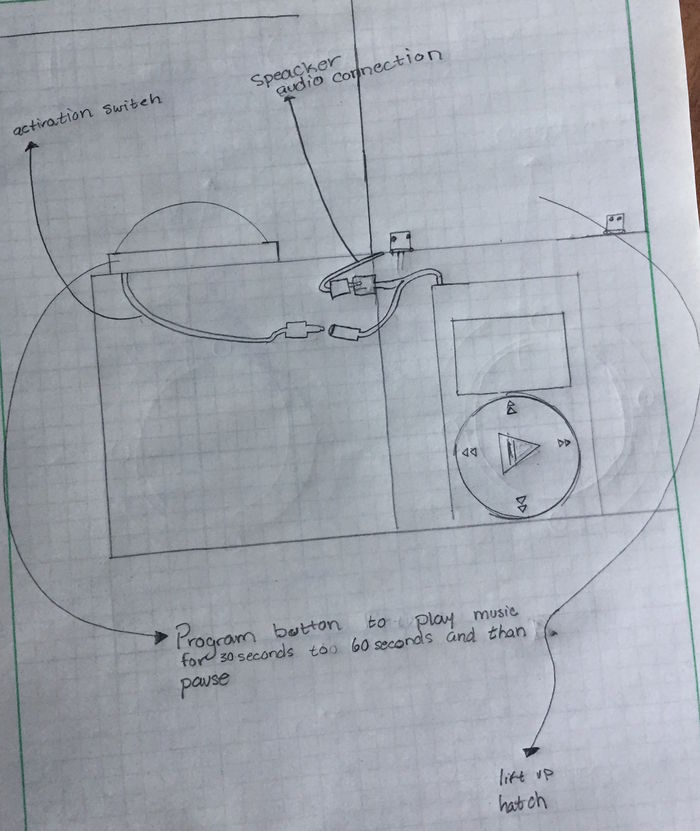 Speacker
audio connection
activation switch
Program button to play music
for 30 seconds too 60 seconds and than
pause
lift up
hatch